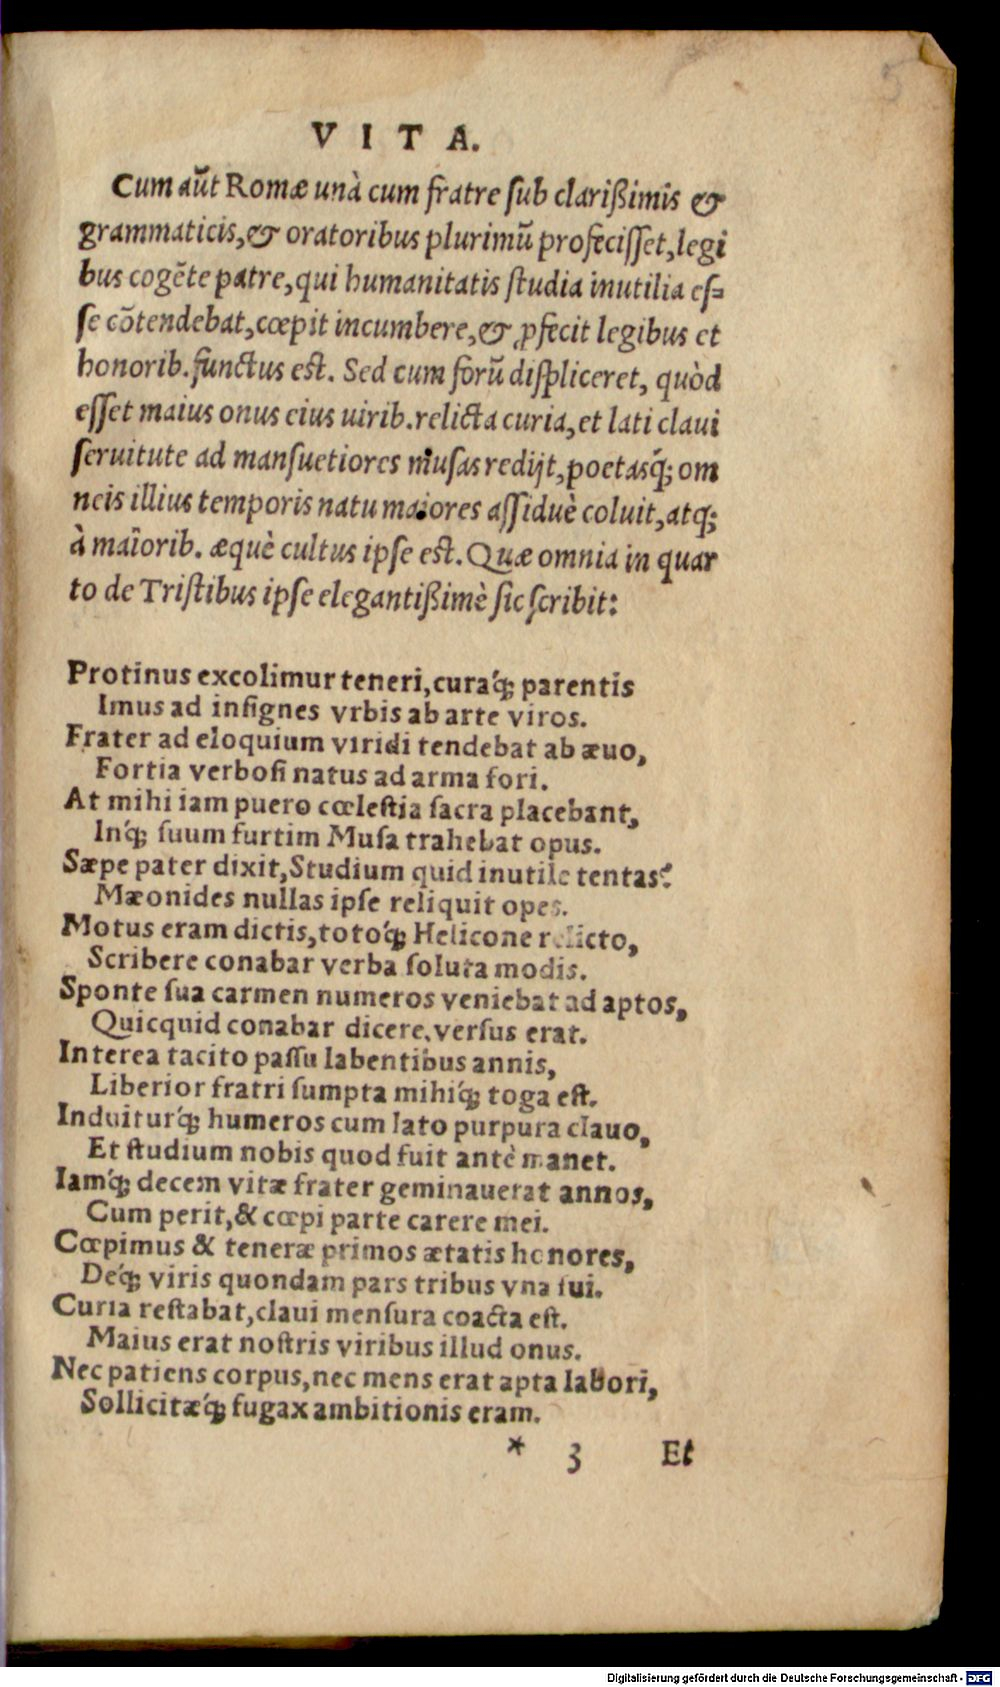 5
VITA.
Cum aũt Romæ unà cum fratre ſub clarißimis &
grammaticis, & oratoribus plurimũ profeciſſet, legi
bus cogẽte patre, qui humanitatis ſtudia inutilia eſ=
ſe cõtendebat, cœpit incumbere, & ꝓfecit legibus et
honorib. functus est. Sed cum forũ diſpliceret, quòd
eſſet maius onus eius uirib. relicta curia, et lati claui
ſeruitute ad manſuetiores muſas redijt, poetasq́; om
neis illius temporis natu maiores aſſiduè coluit, atq;
à maiorib. æquè cultus ipſe est. Quæ omnia in quar
to de Triſtibus ipſe elegantißimè ſic ſcribit:
Protinus excolimur teneri, curaq́; parentis
Imus ad inſignes vrbis ab arte viros.
Frater ad eloquium viridi tendebat ab æuo,
Fortia verboſi natus ad arma fori.
At mihi iam puero cœleſtia ſacra placebant,
Inq́; ſuum furtim Muſa trahebat opus.
Sæpe pater dixit, Studium quid inutile tentas?
Mæonides nullas ipſe reliquit opes.
Motus eram dictis, totoq́; Helicone relicto,
Scribere conabar verba ſoluta modis.
Sponte ſua carmen numeros veniebat ad aptos,
Quicquid conabar dicere, verſus erat.
Interea tacito paſſu labentibus annis,
Liberior fratri ſumpta mihiq́; toga eſt.
Induiturq́; humeros cum lato purpura clauo,
Et ſtudium nobis quod fuit antè manet.
Iamq́; decem vitæ frater geminauerat annos,
Cum perit, & cœpi parte carere mei.
Cœpimus & teneræ primos ætatis honores,
Deq́; viris quondam pars tribus vna fui.
Curia reſtabat, claui menſura coacta eſt.
Maius erat noſtris viribus illud onus.
Nec patiens corpus, nec mens erat apta labori,
Sollicitæq́; fugax ambitionis eram.
* 3 Et
Digitalisierung gefördert durch die Deutsche Forschungsgemeinschaft - DFG